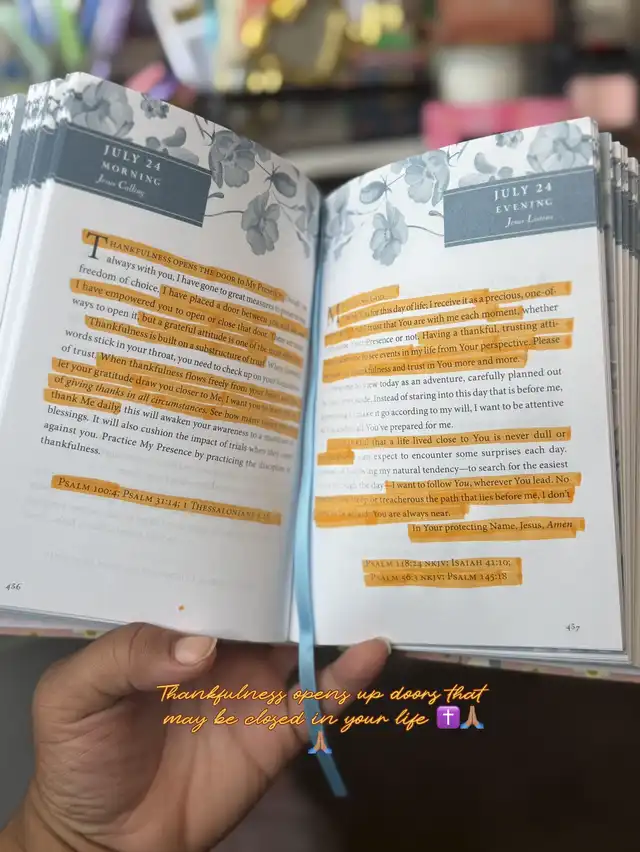 JULY 24
MORNING
Jesus Calling
THANKFULNESS OPENS THE DOOR TO MY PRESENCE.
always with you, I have gone to great measures to
freedom of choice. I have placed a door between you and
I have empowered you to open or close that door. There are many
ways to open it, but a grateful attitude is one of the most
Thankfulness is built on a substructure of trust. When
words stick in your throat, you need to check up on your
of trust. When thankfulness flows freely from your heart and
let your gratitude draw you closer to Me. I want you to
of giving thanks in all circumstances. See how many times you
thank Me daily; this will awaken your awareness to a
blessings. It will also cushion the impact of trials when they
against you. Practice My Presence by practicing the discipline of
thankfulness.
PSALM 100:4; PSALM 31:14; 1 THESSALONIANS 5:18
456
JULY 24
EVENING
Jesus Listens
for this day of life; I receive it as a precious, one-of-
trust that You are with me each moment, whether
Presence or not. Having a thankful, trusting atti-
see events in my life from Your perspective. Please
thankfulness and trust in You more and more.
view today as an adventure, carefully planned out
Guide. Instead of staring into this day that is before me,
it go according to my will, I want to be attentive
all You've prepared for me.
that a life lived close to You is never dull or
expect to encounter some surprises each day.
my natural tendency—to search for the easiest
through the day. I want to follow You, wherever You lead. No
or treacherous the path that lies before me, I don't
You are always near.
In Your protecting Name, Jesus, Amen
PSALM 118:24 NKJV; ISAIAH 41:10;
PSALM 56:3 NKJV; PSALM 145:18
457
Thankfulness opens up doors that
may be closed in your life ✝️🙏🏽
🙏🏽